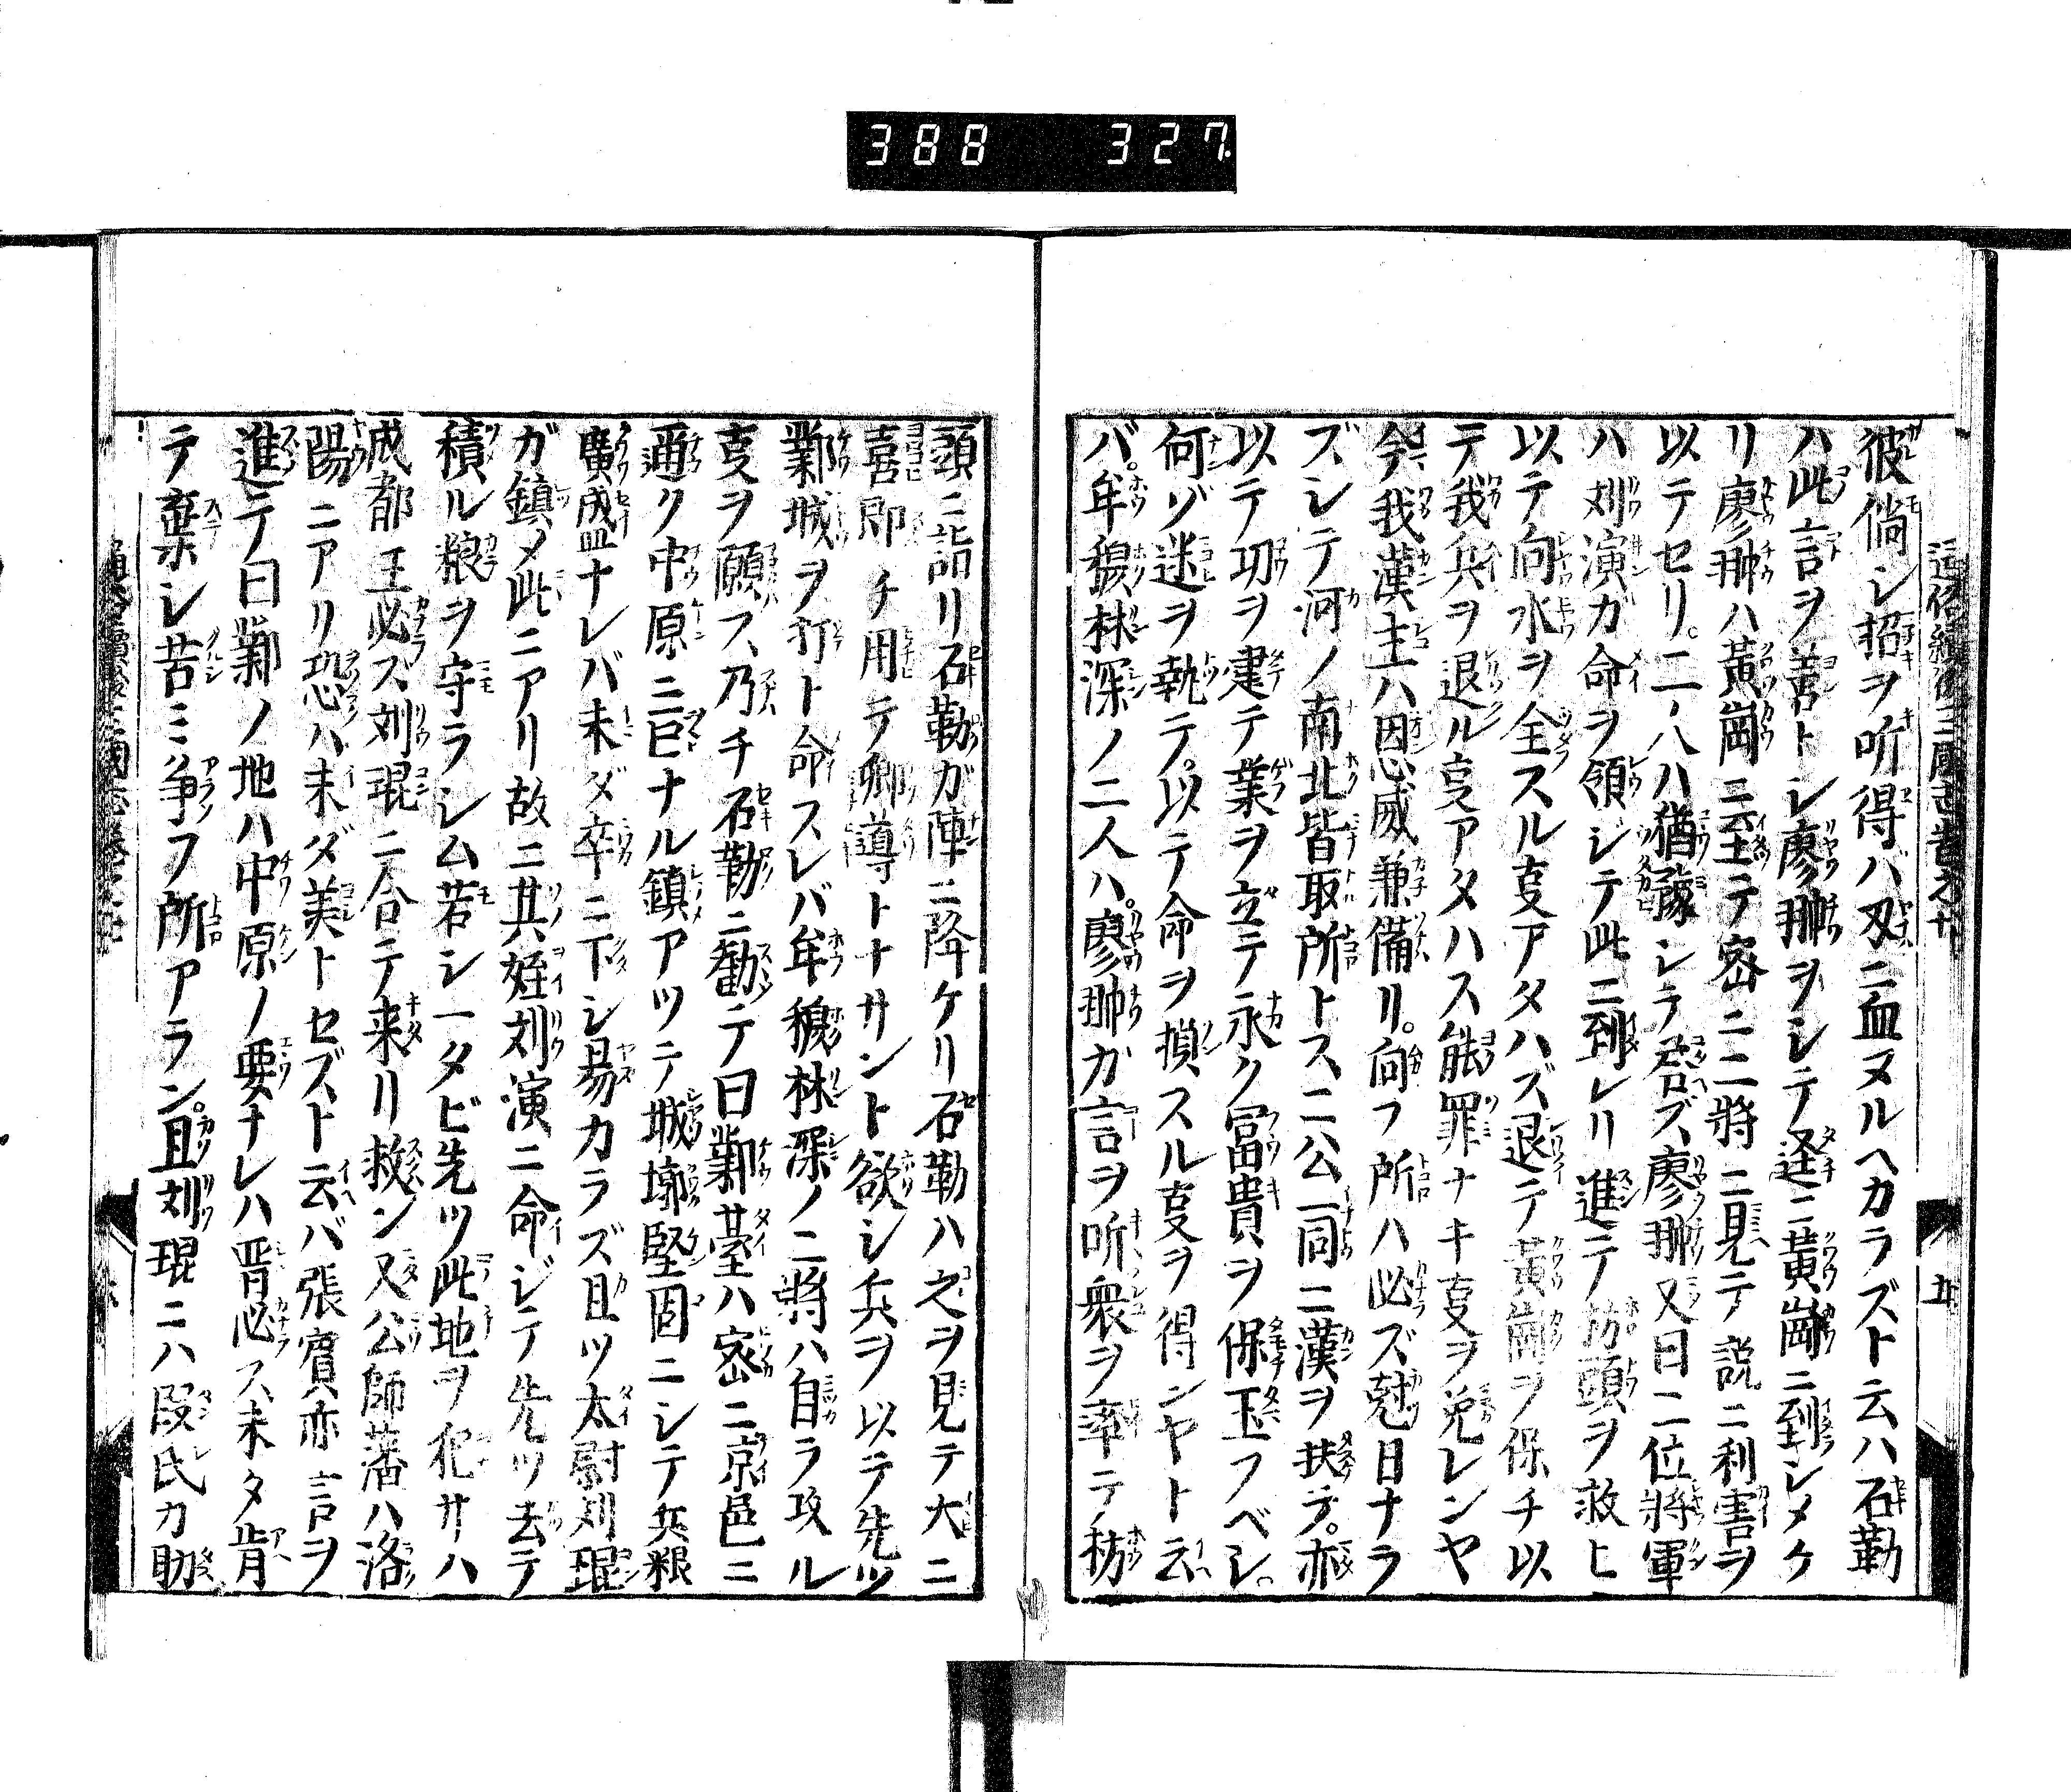 388 327
彼倘シ招ヲ听得バ刄ニ血ヌルヘカラズト云ハ石勒
ハ此言ヲ善トシ廖翀ヲシテ逕ニ黄崗ニ到シメケ
リ廖翀ハ黄崗ニ至テ密ニ二將ニ見テ説ニ利害ヲ
以テセリ。二人ハ猶豫シテ荅ズ廖翀又曰二位將軍
ハ刘演カ命ヲ領シテ此ニ到レリ進テ枋頭ヲ救ヒ
以テ向水ヲ全スル叓アタハズ退テ黄崗ヲ保チ以
テ我兵ヲ退ル叓アタハス能罪ナキ叓ヲ免レンヤ
今我漢主ハ恩威兼備リ。向フ所ハ必ズ尅日ナラ
ズシテ河ノ南北皆取所トス二公一同ニ漢ヲ扶テ。亦
以テ功ヲ建テ業ヲ立テ永ク冨貴ヲ保玉フベシ。
何ゾ迷ヲ執テ。以テ命ヲ損スル叓ヲ得ンヤト云
バ。牟穆林深ノ二人ハ。廖翀カ言ヲ听衆ヲ率テ枋
頭ニ詣リ石勒ガ陣ニ降ケリ石勒ハ之ヲ見テ大ニ
喜即チ用テ郷導トナサント欲シ兵ヲ以テ先ツ
鄴城ヲ打ト命スレバ牟穆林深ノ二將ハ自ラ攻ル
叓ヲ願ス乃チ石勒ニ勸テ曰鄴䑓ハ密ニ京邑ニ
邇ク中原ニ巨ナル鎮アツテ城墎堅固ニシテ兵粮
廣盛ナレバ未ダ卒ニ下シ易カラズ且ツ太尉刘琨
ガ鎮メ此ニアリ故ニ其姪刘演ニ命ジテ先ツ去テ
積ル粮ヲ守ラシム若シ一タビ先ツ此地ヲ犯サハ
成都王必ス刘琨ニ合テ来リ救ン又公師藩ハ洛
陽ニアリ恐ハ未ダ美トセズト云バ張賓亦言ヲ
進テ曰鄴ノ地ハ中原ノ要ナレハ晋必ス未タ肯
テ棄シ苦ミ争フ所アラン。且刘琨ニハ段氏カ助